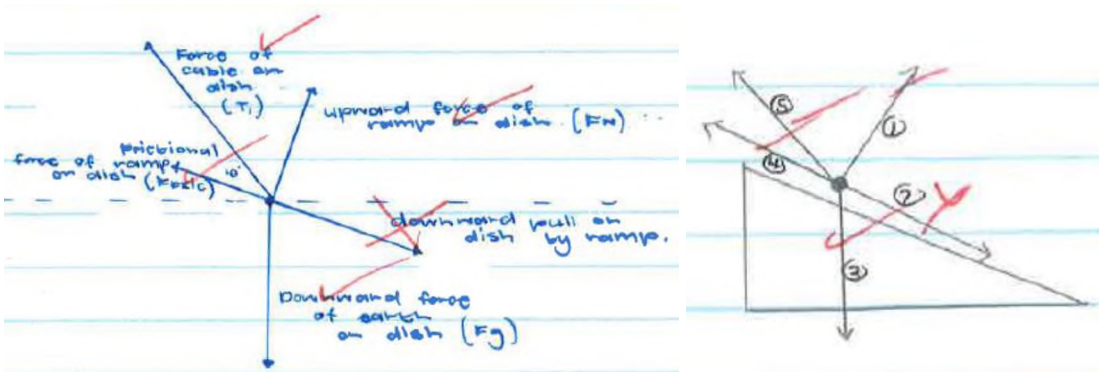 Force of
cable on
dish
(T1)
upward force of
ramp on dish (FN)
frictional
force of ramp
on dish (Ffric)
10°
downward pull on
dish by ramp.
Downward force
of earth
on dish (Fg)
⑤
①
④
②
③